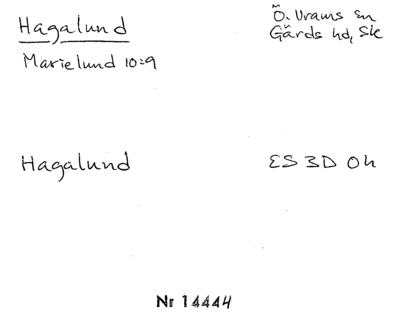 Hagalund
Ö. Vrams sn
Gärds hd, Sk
Marielund 10:9
Hagalund
ES 3D 0h
Nr 14444